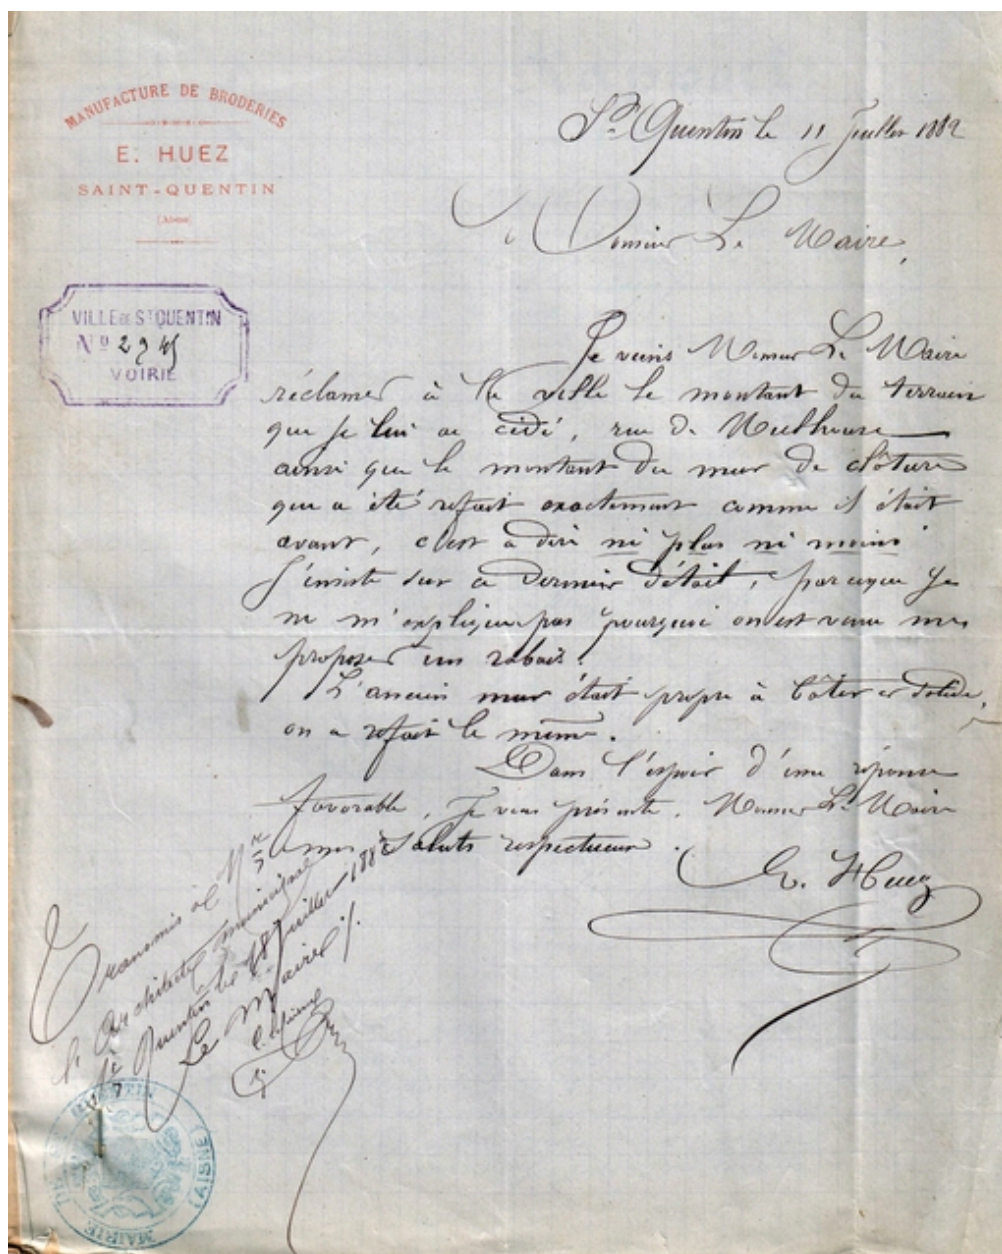 MANUFACTURE DE BRODERIES
E. HUEZ
SAINT-QUENTIN
(Aisne)
St Quentin le 11 Juillet 1882
Monsieur Le Maire,
VILLE DE ST QUENTIN
No 2945
VOIRIE
Je viens Monsieur Le Maire
réclamer à la ville le montant du terrain
que je lui ai cédé, rue de Mulhouse
ainsi que le montant du mur de clôture
qui a été refait exactement comme il était
avant, c'est à dire ni plus ni moins
J'insiste sur ce dernier détail, parceque je
ne m'explique pas pourquoi on est venu me
proposer un rabais.
L'ancien mur était propre à côter et solide,
on a refait le même.
Dans l'espoir d'une réponse
favorable, je vous présente, Monsieur Le Maire
mes saluts respectueux.
E. Huez
Transmis à Mr
l'Architecte municipal
St Quentin le 18 Juillet 1882
Le Maire
MAIRIE DE ST QUENTIN (AISNE)